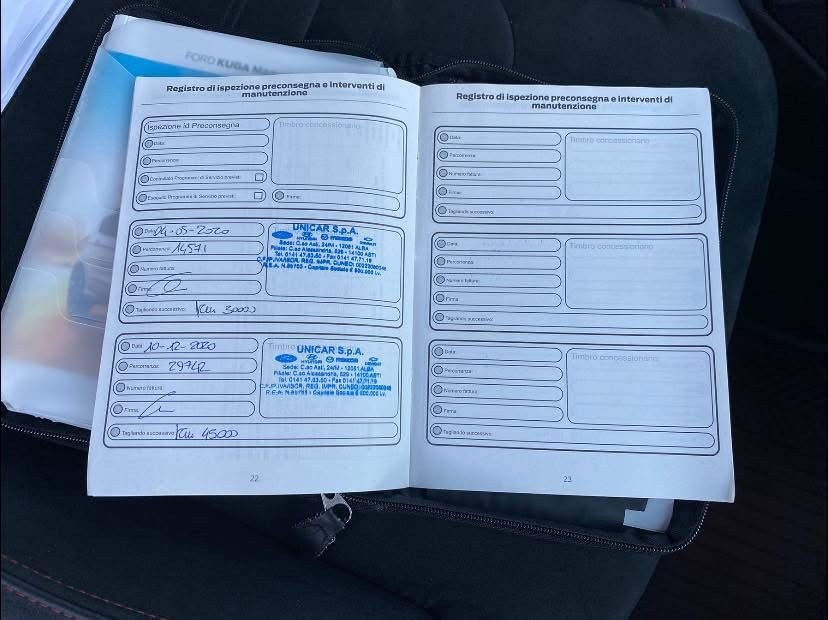 FORD KUGA
Registro di ispezione preconsegna e interventi di
manutenzione
Ispezione id Preconsegna
Data:
Percorrenza:
Controllato Programmi di Servizio previsti:
Eseguito Programmi di Servizio previsti:
Timbro concessionario
Firma:
Data: 04-05-2020
Percorrenza: 14571
Numero fattura:
Firma:
Tagliando successivo: Km 30000
UNICAR S.p.A.
Ford HYUNDAI mazda CHEVROLET
Sede: C.so Asti, 24/M - 12051 ALBA
Filiale: C.so Alessandria, 529 - 14100 ASTI
Tel. 0141 47.63.50 - Fax 0141 47.71.19
REG. IMPR. CUNEO
R.E.A. N. - Capitale Sociale € 500.000 i.v.
Data: 10-12-2020
Percorrenza: 29742
Numero fattura:
Firma:
Tagliando successivo: Km 45000
Timbro
UNICAR S.p.A.
Ford HYUNDAI mazda CHEVROLET
Sede: C.so Asti, 24/M - 12051 ALBA
Filiale: C.so Alessandria, 529 - 14100 ASTI
Tel. 0141 47.63.50 - Fax 0141 47.71.19
REG. IMPR. CUNEO
R.E.A. N. - Capitale Sociale € 500.000 i.v.
22
Registro di ispezione preconsegna e interventi di
manutenzione
Data:
Percorrenza:
Numero fattura:
Firma:
Tagliando successivo:
Timbro concessionario
Data:
Percorrenza:
Numero fattura:
Firma:
Tagliando successivo:
Timbro concessionario
Data:
Percorrenza:
Numero fattura:
Firma:
Tagliando successivo:
Timbro concessionario
23